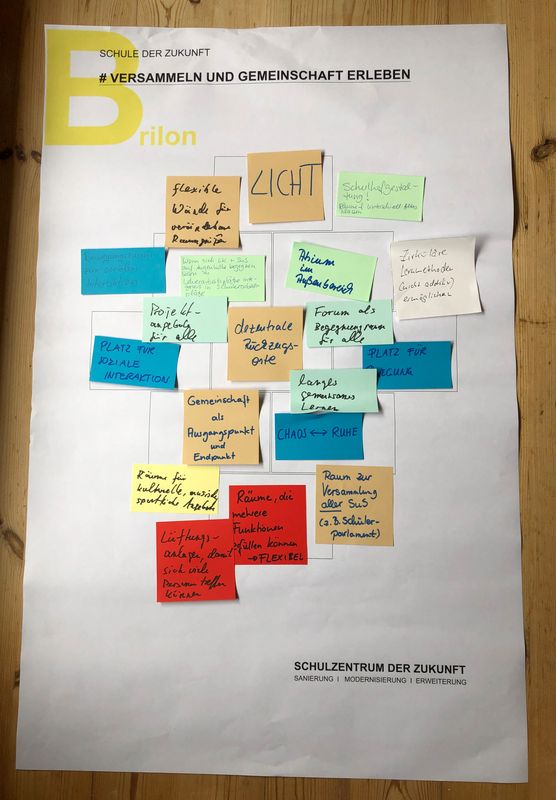 SCHULE DER ZUKUNFT
# VERSAMMELN UND GEMEINSCHAFT ERLEBEN
Brilon
flexible
Wände für
Raumgrößen
LICHT
Schulhofgestal-
tung!
Atrium
im
Außenbereich
Zirkuläre
Lernmethoden
(nicht additiv)
ermöglichen
Projekt-
angebote
für alle
dezentrale
Rückzugs-
orte
Forum als
Begegnungsraum
für alle
PLATZ FÜR
SOZIALE
INTERAKTION
PLATZ FÜR
langes
gemeinsames
Lernen
Gemeinschaft
als
Ausgangspunkt
und
Endpunkt
CHAOS ↔ RUHE
Räume für
kulturelle, musische
sportliche Angebote
Räume, die
mehrere
Funktionen
erfüllen können
→ FLEXIBEL
Raum zur
Versammlung
aller SuS
(z.B. Schüler-
parlament)
Lüftungs-
anlagen, damit
sich viele
Personen treffen
können
SCHULZENTRUM DER ZUKUNFT
SANIERUNG I MODERNISIERUNG I ERWEITERUNG